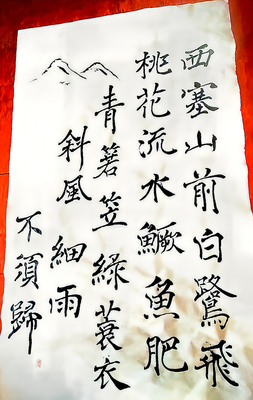 西塞山前白鷺飛
桃花流水鱖魚肥
青箬笠綠蓑衣
斜風細雨
不須歸